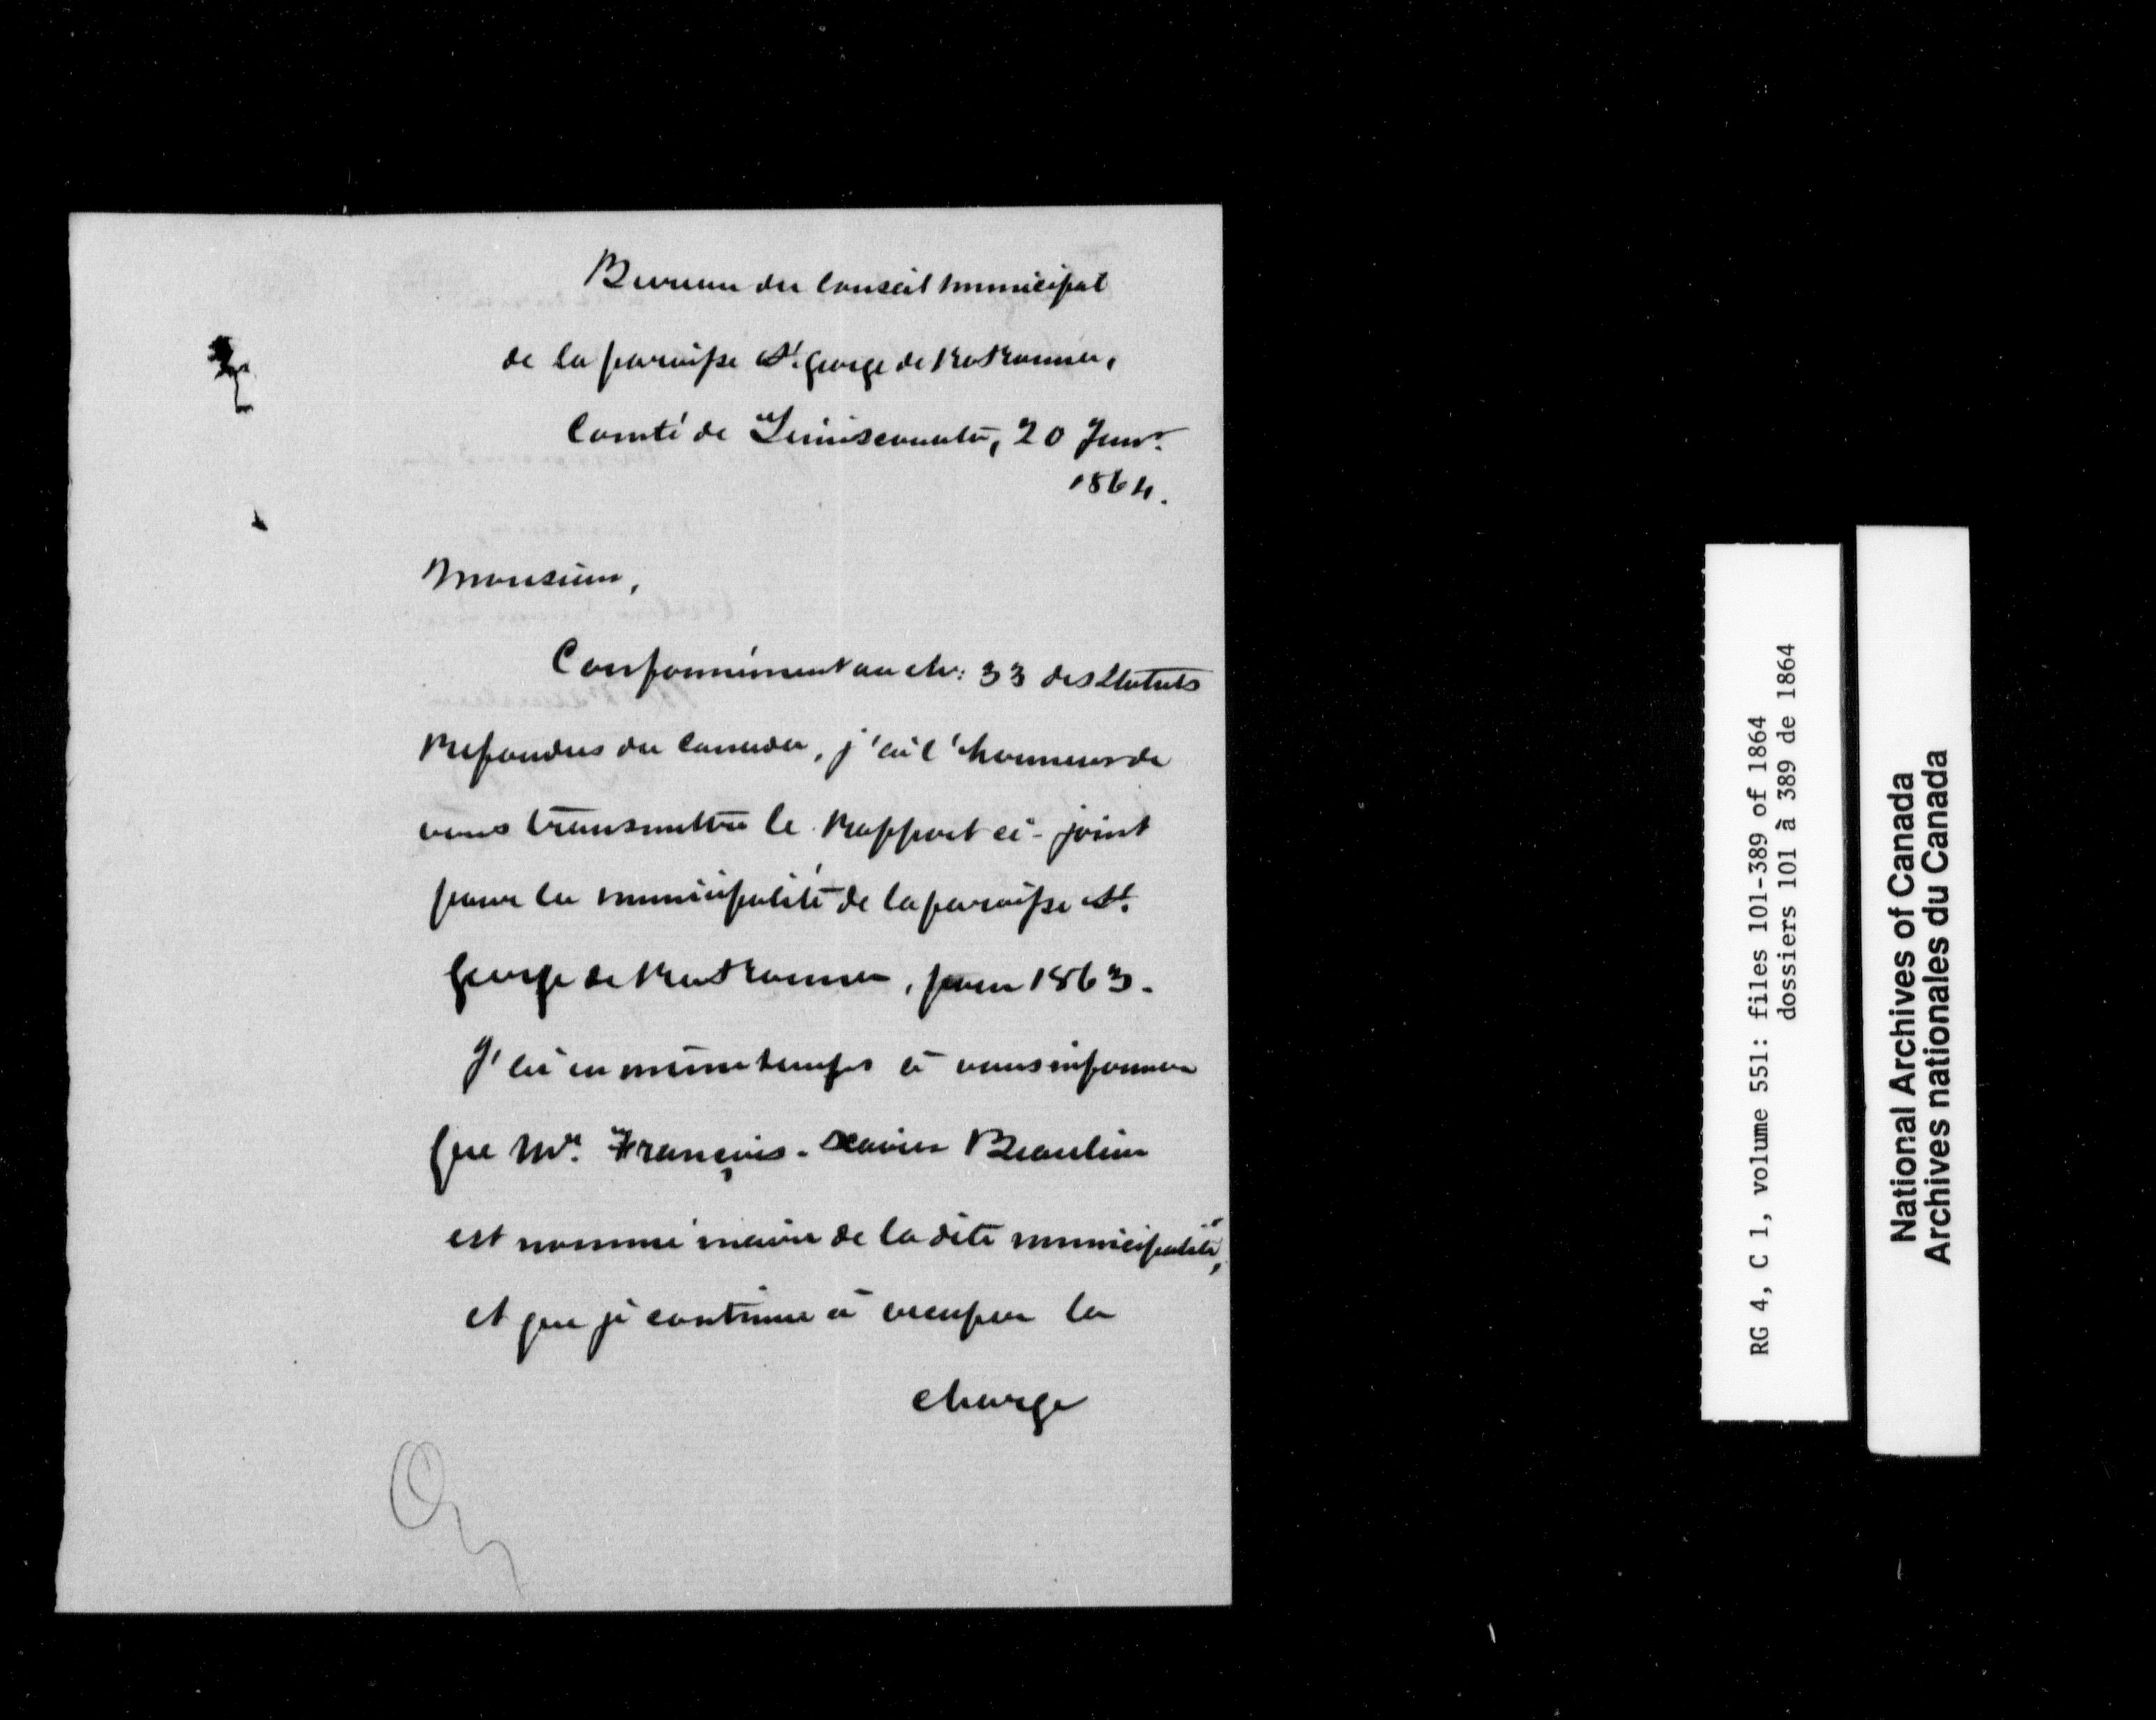 Bureau du Conseil Municipal
de la paroisse St. George de Kakouna,
Comté de Témiscouata, 20 Janvr.
1864.
Monsieur,
Conformément au ch: 33 des Statuts
Refondus du Canada, j'ai l'honneur de
vous transmettre le Rapport ci-joint
pour la municipalité de la paroisse St.
George de Kakouna, pour 1863.
J'ai en même temps à vous informer
que Mr. François-Xavier Beaulieu
est nommé maire de la dite municipalité,
et que je continue à occuper la
charge
RG 4, C 1, volume 551: files 101-389 of 1864
dossiers 101 à 389 de 1864
National Archives of Canada
Archives nationales du Canada